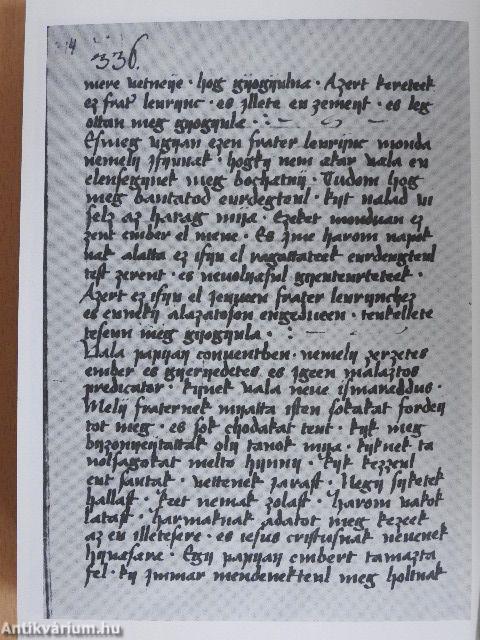 336.
mere vetneije · hog gijogijulna · Azert kereteek
ez frat͛ leurijnc · es Illete eu zemeijt · es leg
ottan meg gijogijula ·
Esmeg vgijan ezen frater leurijnc monda
nemelij Ifijunak · hogky nem akar vala eu
elensegijnek meg bochatnij · Tudom hog
meg bantatod eurdegteul · kijt nalad vi
selz az harag mija · Ezeket monduan ez
zent ember el mene · Es Ime harom napok
nak alatta ez ifiju el ragattateek eurdeugteul
test zerent · es neuolijasul gijeuteurteteek ·
Azert ez ifiju el Ieujuen frater leurijnchez
es eunekij alazatoson engedueen · teukellete
teseun meg gijogijula ·
Vala papijai conuentben · nemelij zerzetes
ember es gijerijedetes es igeen malaztos
predicator · kijnek vala neue ismareddus ·
Melij fraternek mijatta isten sokakat fordeij
tot meg · es sok chodakat teut · kijk meg
bijzonijeijtattak olij tanok mija · kijknek ta
nolsagokat melto hijnnij · kijk kezzeul
eut santak · vettenek Iarast · Negij siketek
hallast · keet nemak zolast · harom vakok
latast · harmaknak adatot meg kezeek
az eu illetesere · es iesus cristusnak neuenek
hijuasara · Egij papijai embert tamazta
fel · kij Immar mendenekteul meg holtnak
Antikvárium.hu